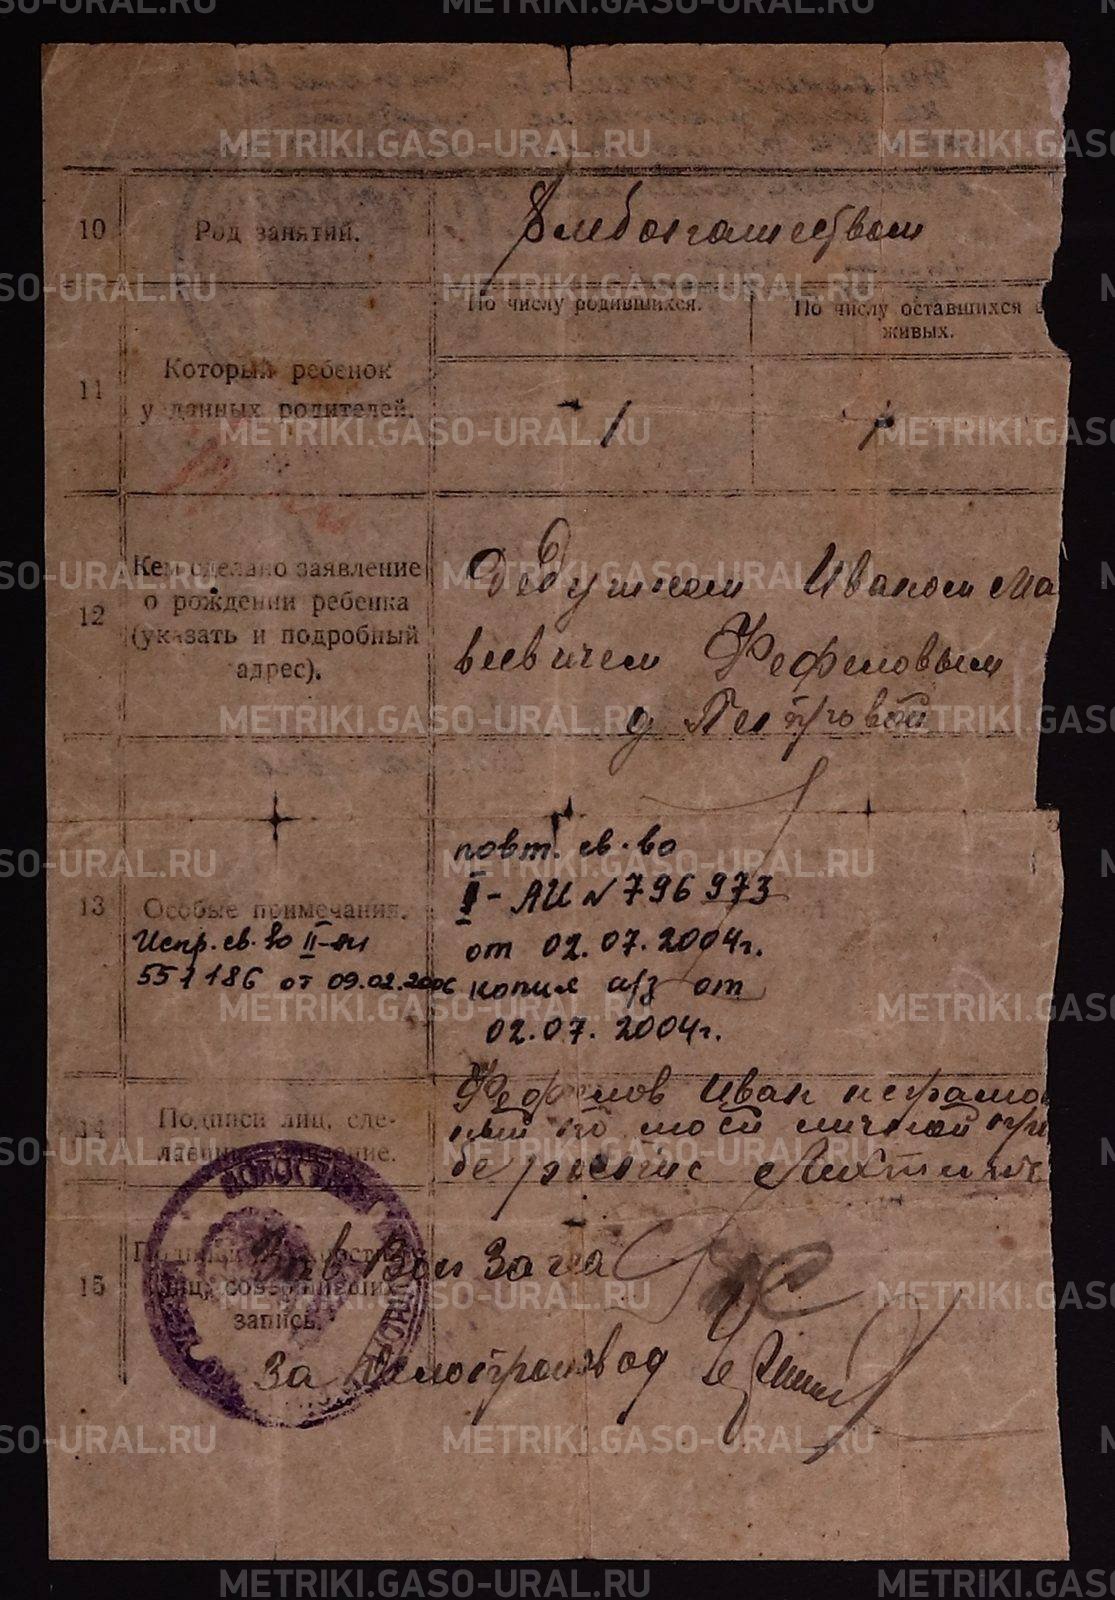 METRIKI.GASO-URAL.RU
10
Род занятий.
Хлебопашеством
По числу родившихся.
По числу оставшихся в
живых.
11
Который ребенок
у данных родителей.
1
1
12
Кем сделано заявление
о рождении ребенка
(указать и подробный
адрес).
Дедушкой Иваном Ма
веевичем Фефеловым
д Петровой
13
Особые примечания.
Испр. св. во II-АИ
551186 от 09.02.2006
повт. св-во
I-АИ N 796 973
от 02.07.2004г.
копия а/з от
02.07.2004г.
14
Подписи лиц, сде-
лавших заявление.
Фефелов Иван неграмо
ный по моей личной
15
запись.
Зав Вол Загса
За делопроизвод